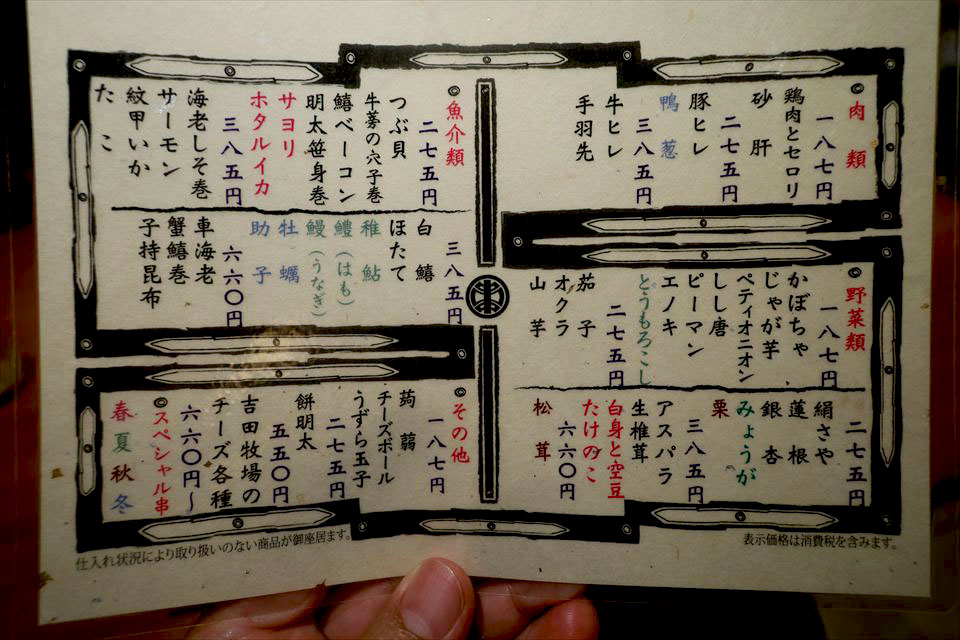 ◎肉類
一八七円
鶏肉とセロリ
砂肝
二七五円
豚ヒレ
鴨葱
三八五円
牛ヒレ
手羽先
◎野菜類
一八七円
かぼちゃ
じゃが芋
ペティオニオン
しし唐
ピーマン
エノキ
とうもろこし
二七五円
茄子
オクラ
山芋
二七五円
絹さや
蓮根
銀杏
みょうが
栗
三八五円
アスパラ
生椎茸
白身と空豆
たけのこ
六六〇円
松茸
◎魚介類
二七五円
つぶ貝
牛蒡の穴子巻
鱚ベーコン
明太笹身巻
サヨリ
ホタルイカ
三八五円
海老しそ巻
サーモン
紋甲いか
たこ
三八五円
白鱚
ほたて
稚鮎
鱧(はも)
鰻(うなぎ)
牡蠣
助子
六六〇円
車海老
蟹鱚巻
子持昆布
◎その他
一八七円
蒟蒻
チーズボール
うずら玉子
二七五円
餅明太
五五〇円
吉田牧場の
チーズ各種
六六〇円〜
◎スペシャル串
春夏秋冬
表示価格は消費税を含みます。
仕入れ状況により取り扱いのない商品が御座居ます。